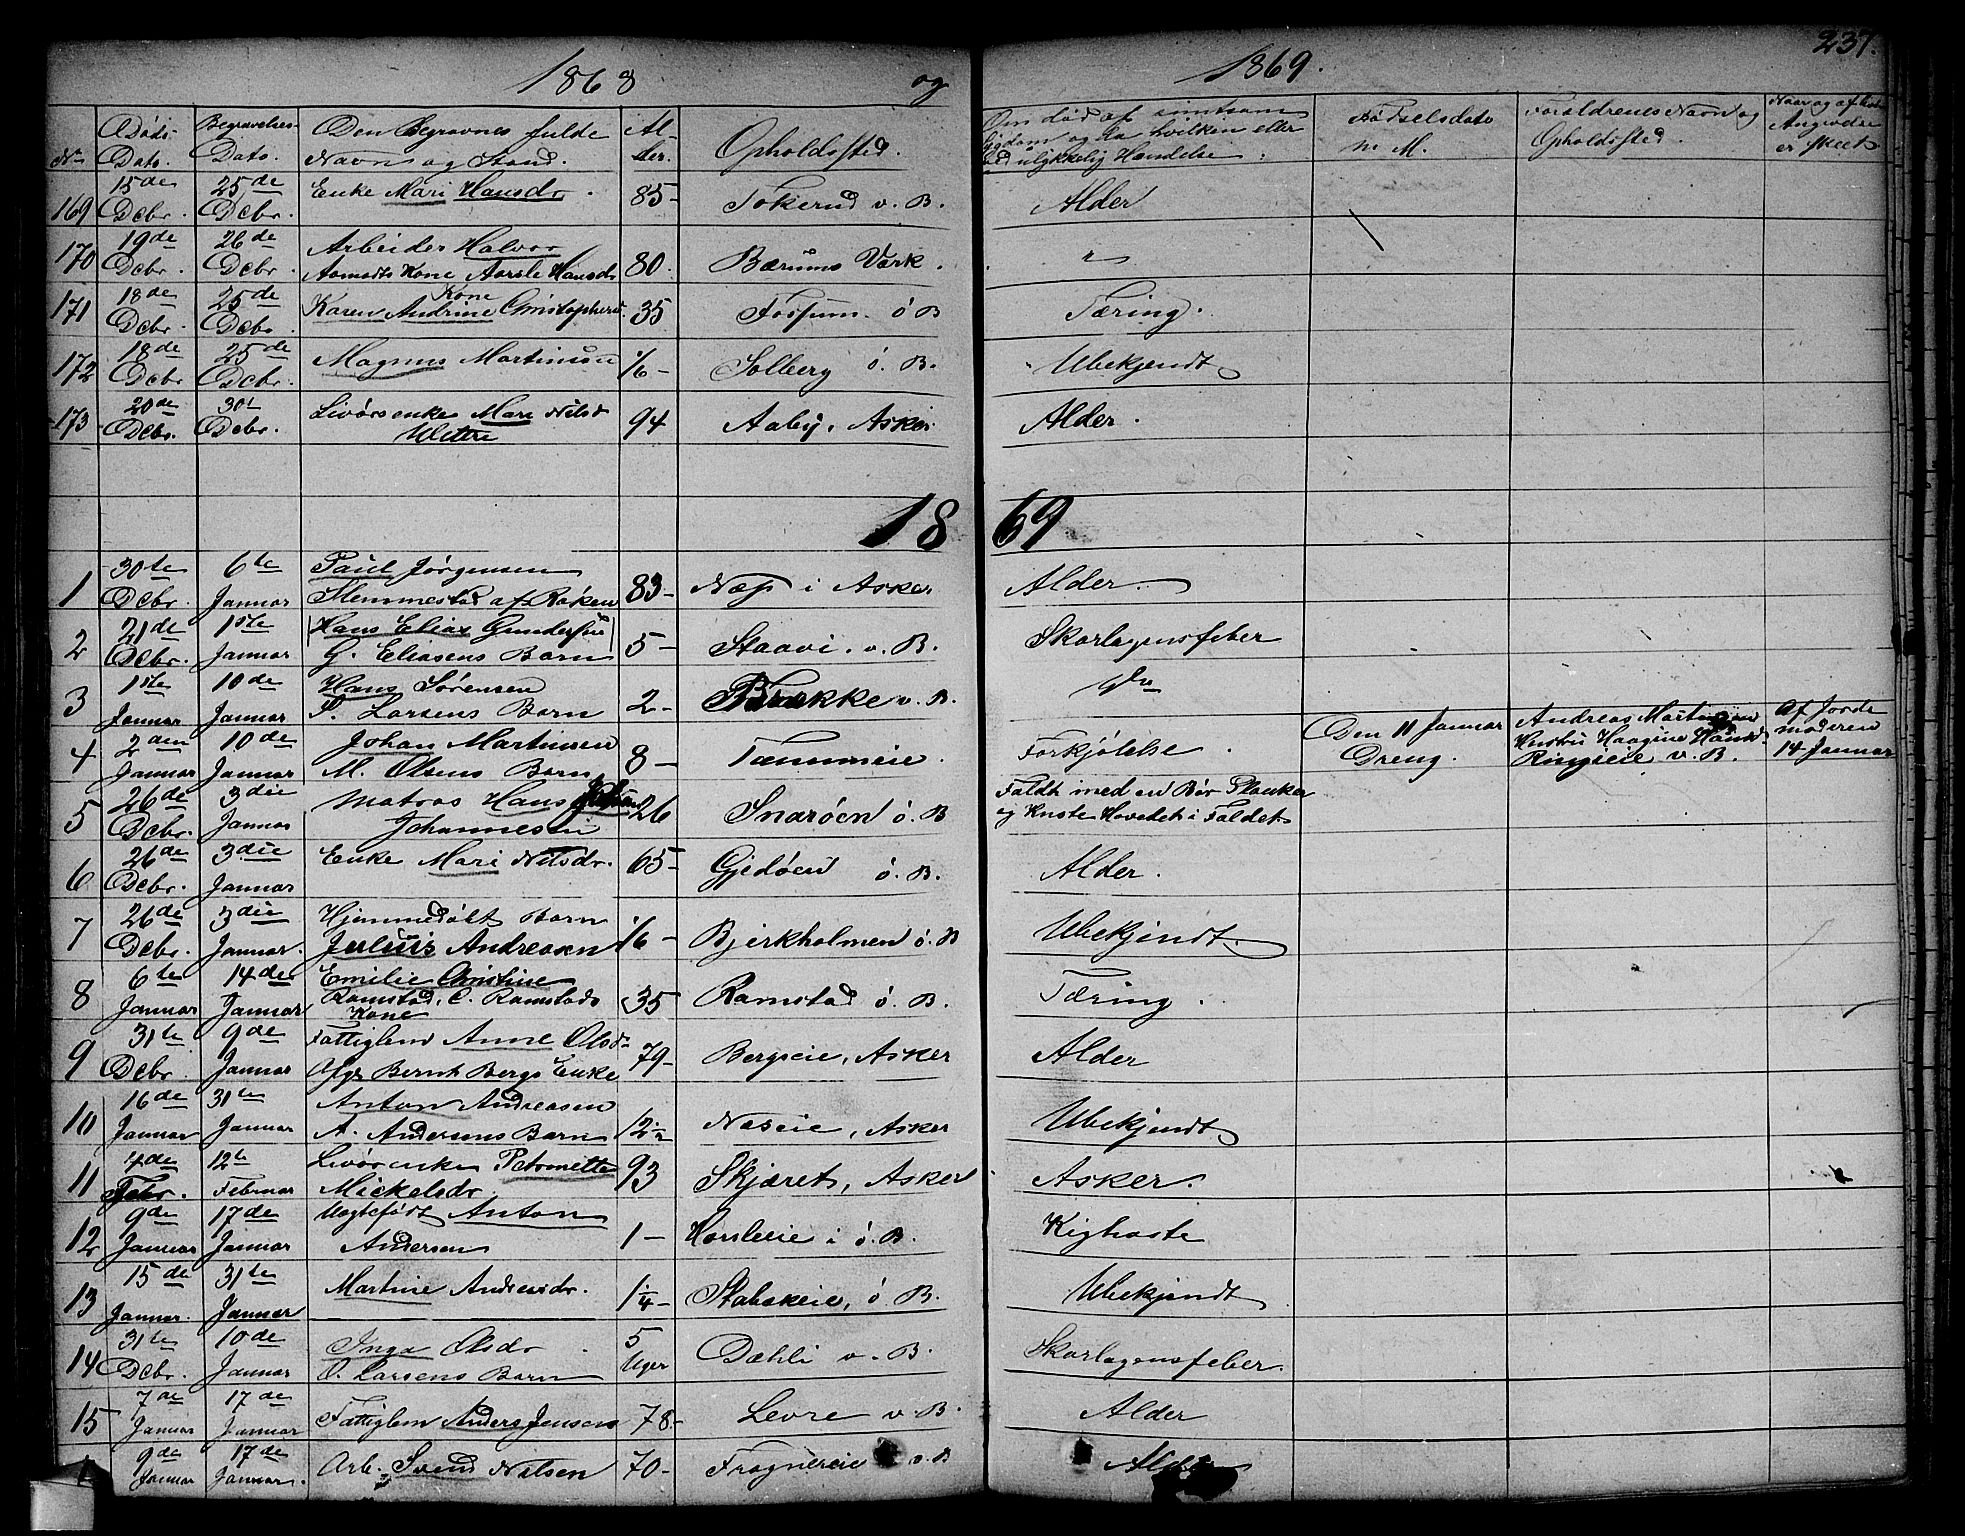 1868 og 1869. 237.
No Døds- Dato. Begravelses- Dato. Den Begravnes fulde Navn og Stand. Al- der. Opholdssted. Om død af smitsom Sygdom og da hvilken eller ved ulykkelig Hændelse: Fødselsdato m. M. Forældrenes Navn og Opholdssted. Naar og af hvem Angivelse er skeet
169 15de Dcbr. 25de Dcbr. Enke Mari Hansdr. 85- Tokerud v. B. Alder
170 19de Dcbr. 26de Dcbr. Arbeider Halvor
Asmodts Kone Aasle Hansdr 80. Bærums Værk. "
171 18de Dcbr. 25de Dcbr. Kone
Karen Andrine Christophersd. 35 Fossum ø B Tæring.
172 18de Dcbr 25de Dcbr. Magnus Martinsen 1/6- Solberg ø. B. Ubekjendt
173 20de Dcbr. 30t Dcbr. Livørsenke Mari Nilsd
Wettre 94 Aaby, Asker Alder.
1869
1 30te Dcbr. 6te Januar Paul Jørgensen
Slemmestad af Røken 83- Næs i Asker. Alder.
2 21de Dcbr. 1ste Januar Hans Elias Gundersen
G. Eliasens Barn 5- Staavi. v. B. Skarlagensfeber
3 1ste Januar 10de Januar Hans Sørensen
S. Larsens Barn 2- Brække v. B. Do
4 2den Januar 10de Januar Johan Martinsen
M. Olsens Barn 8- Tanumeie. Forkjølelse. Den 11 Januar
Dreng. Andreas Martinsen
Hustru Haagine Hansd.
Ringieie v. B. Af Jorde
moderen
14 Januar
5 26de Dcbr. 3die Januar Matros Hans
Johannesen 26 Snarøen ø. B Faldt med en Bør Planker
og knuste Hovedet i Faldet
6 26de Dcbr. 3die Januar Enke Mari Nilsdr. 65- Gjedøen ø. B. Alder.
7 26de Dcbr. 3die Januar. Hjemmedøbt Barn
Julius Andreasen 1/6- Bjerkholmen ø. B Ubekjendt.
8 6te Januar 14de Januar Emilie Christine
Ramstad, C. Ramstads
Kone 35 Ramstad ø. B. Tæring.
9 31te Dcbr. 9de Januar Fattiglem Anne Olsd-
Afgr Bernt Bergs Enke 79- Bergseie, Asker Alder
10 16de Januar 31te Januar Anton Andreasen
A. Andersens Barn 12 Neseie, Asker Ubekjendt
11 4de Febr. 12te Februar Livørenke Petronette
Mickelsdr. 93 Skjæret, Asker Asker.
12 9de Januar 17de Januar Uægtefødt Anton
Andersen 1- Horsleeie i ø. B. Kighoste
13 15de Januar. 31te Januar Martine Andreasdr. 1 1/4- Stabekeie, ø. B. Ubekjendt
14 31te Dcbr. 10de Januar Inga Olsdr
O. Larsens Barn 5
Uger Dæhli v. B. Skarlagensfeber.
15 7de Januar 17de Januar Fattiglem Anders Jensen 78- Levre v. B. Alder
9de Januar 17de Januar. Arb. Svend Nilsen 70- Frognereie v. B Alder